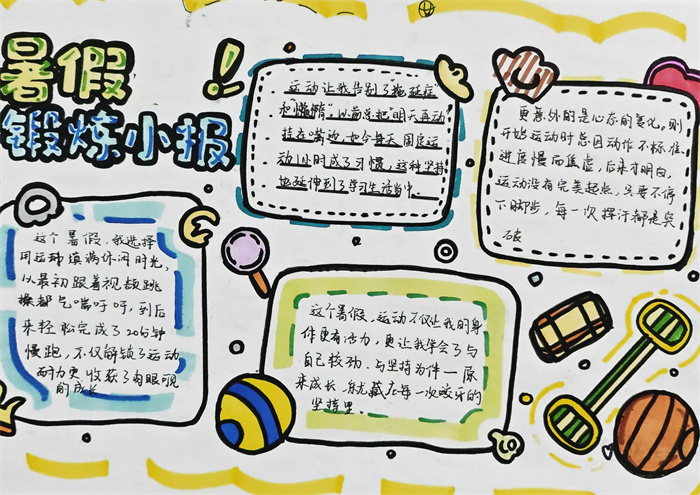 暑假
锻炼小报
运动让我告别了“拖延症”
和“懒惰”，以前总把“明天再动”
挂在嘴边，如今每天固定运
动1小时成了习惯，这种坚持
也延伸到了学习生活当中。
更意外的是心态的变化。刚
开始运动时总因动作不标准、
进度慢而焦虑，后来才明白，
运动没有完美起点，只要不停
下脚步，每一次挥汗都是突
破
这个暑假，我选择
用运动填满休闲时光，
从最初跟着视频跳
操都气喘吁吁，到后
来轻松完成了20分钟
慢跑，不仅解锁了运动
耐力更收获了肉眼可见
的成长
这个暑假，运动不仅让我的身
体更有活力，更让我学会了与
自己较劲、与坚持为伴—原
来成长，就藏在每一次咬牙的
坚持里。